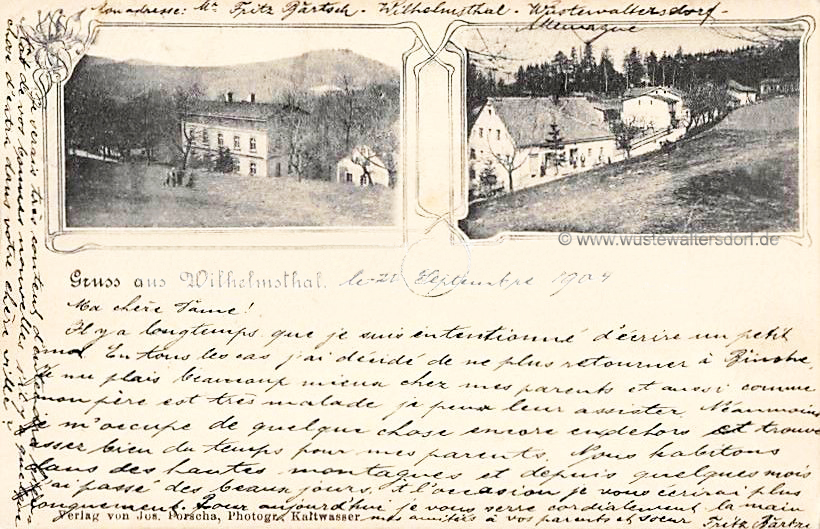 Mon adresse: Mr Fritz Bärtsch - Wilhelmsthal - Wüstewaltersdorf -
Allemagne
© www.wuestewaltersdorf.de
Gruss aus Wilhelmsthal. le 21 Septembre 1904
Ma chère Dame!
Il y a longtemps que je suis intentionné d'écrire un petit
mot. En tous les cas j'ai décidé de ne plus retourner à Binche,
il me plais beaucoup mieux chez mes parents et aussi comme
mon père est très malade je peux leur assister. Néanmoins
je m'occupe de quelque chose encore endehors et trouve
asser bien du temps pour mes parents. Nous habitons
dans des hautes montagnes et depuis quelques mois
j'ai passé des beaux jours, à l'occasion je vous écrirai plus
longuement. Pour aujourd'hui je vous serre cordialement la main
mes amitiés à vos parents et soeur. Fritz
Verlag von Jos. Porscha, Photogr., Kaltwasser
Je serais très content d'entendre
tôt de vos bonnes nouvelles,
chose d'extra dans votre chère ville?